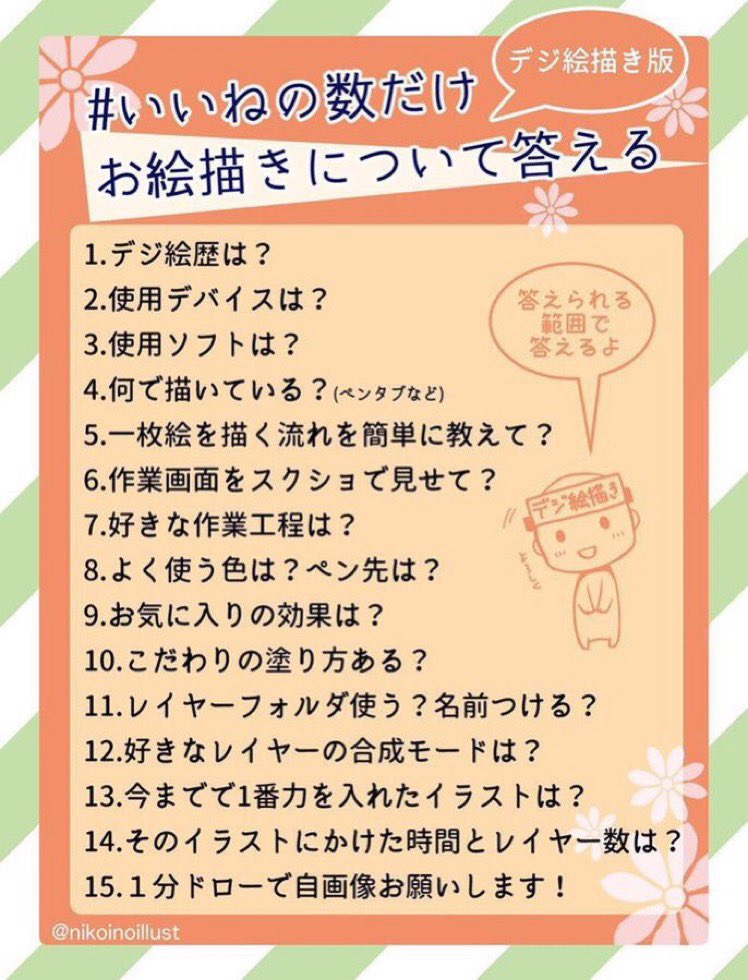 デジ絵描き版
#いいねの数だけ
お絵描きについて答える
1.デジ絵歴は？
2.使用デバイスは？
3.使用ソフトは？
4.何で描いている？(ペンタブなど)
5.一枚絵を描く流れを簡単に教えて？
6.作業画面をスクショで見せて？
7.好きな作業工程は？
8.よく使う色は？ペン先は？
9.お気に入りの効果は？
10.こだわりの塗り方ある？
11.レイヤーフォルダ使う？名前つける？
12.好きなレイヤーの合成モードは？
13.今までで1番力を入れたイラストは？
14.そのイラストにかけた時間とレイヤー数は？
15.１分ドローで自画像お願いします！
答えられる
範囲で
答えるよ
デジ絵描き
@nikoinoillust